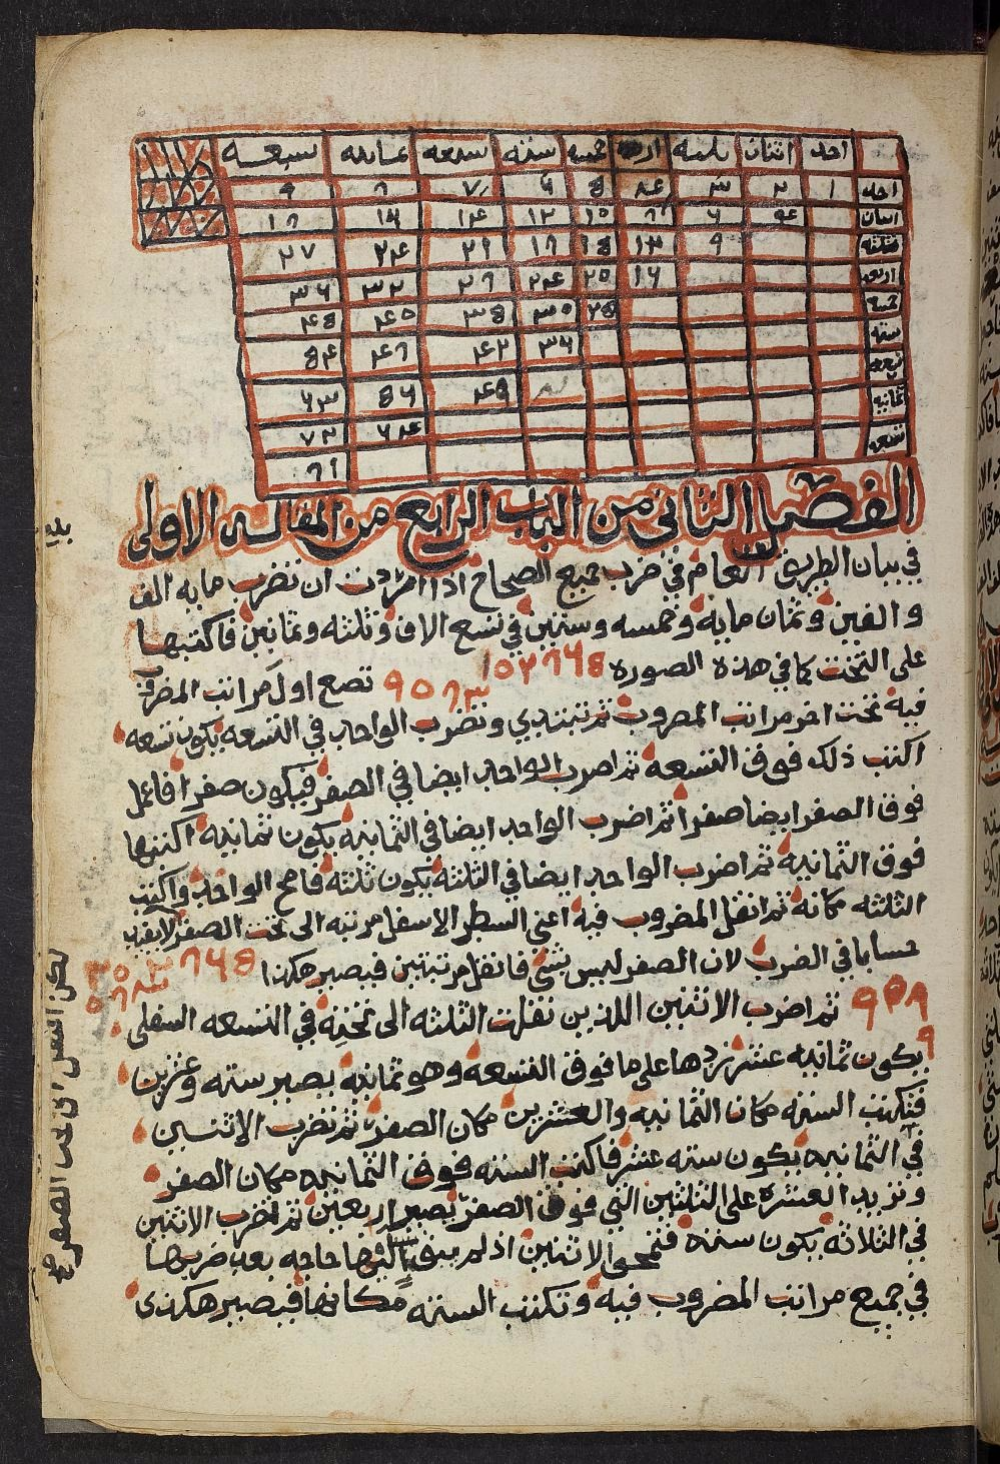 احد اثنان ثلثه اربعه خمسه سته سبعه ثمانيه تسعه
احد ١ ٢ ٣ ٤ ٥ ٦ ٧ ٨ ٩
اثنان ٤ ٦ ٨ ١٠ ١٢ ١٤ ١٦ ١٨
ثلثه ٩ ١٢ ١٥ ١٨ ٢١ ٢٤ ٢٧
اربعه ١٦ ٢٠ ٢٤ ٢٨ ٣٢ ٣٦
خمسه ٢٥ ٣٠ ٣٥ ٤٠ ٤٥
سته ٣٦ ٤٢ ٤٨ ٥٤
سبعه ٤٩ ٥٦ ٦٣
ثمانيه ٦٤ ٧٢
تسعه ٨١
الفصل الثاني من الباب الرابع من المقاله الاولى
في بيان الطريق العام في ضرب جميع الصحاح اذا اردت ان تضرب مايه الف
والفين وثمان مايه وخمسه وستين في تسع الاف وثلثه وثمانين فاكتبها
على التخت كما في هذه الصوره ١٠٢٨٦٥ ٩٠٨٣ تضع اول مراتب المضروب
فيه تحت اخر مراتب المضروب ثم تبتدي وتضرب الواحد في التسعه يكون تسعه
اكتب ذلك فوق التسعه ثم اضرب الواحد ايضا في الصفر فيكون صفرا فاعمل
فوق الصفر ايضا صفرا ثم اضرب الواحد ايضا في الثمانيه يكون ثمانيه اكتبها
فوق الثمانيه ثم اضرب الواحد ايضا في الثلثه يكون ثلثه فامح الواحد واكتب
الثلثه مكانه ثم انقل المضروب فيه اعني السطر الاسفل مرتبه الى تحت الصفر
حسابا في الضرب لان الصفر ليس بشي فانقل مرتبتين فيصير هكذا
ثم اضرب الاثنين اللذين نقلت الثلثه الى تحته في التسعه السفلى
يكون ثمانيه عشر زدها على ما فوق التسعه وهو ثمانيه يصير سته وعشرين
فتكتب السته مكان الثمانيه والعشرين مكان الصفر ثم تضرب الاثنين
في الثمانيه يكون سته عشر فاكتب السته فوق الثمانيه مكان الصفر
وتزيد العشره على الثلثين التي فوق الصفر يصير اربعين ثم تضرب الاثنين
في الثلاثه يكون سته فتمحى الاثنين اذ لم يبق اليها حاجه بعد ضربها
في جميع مراتب المضروب فيه وتكتب السته مكانها فيصير هكذى